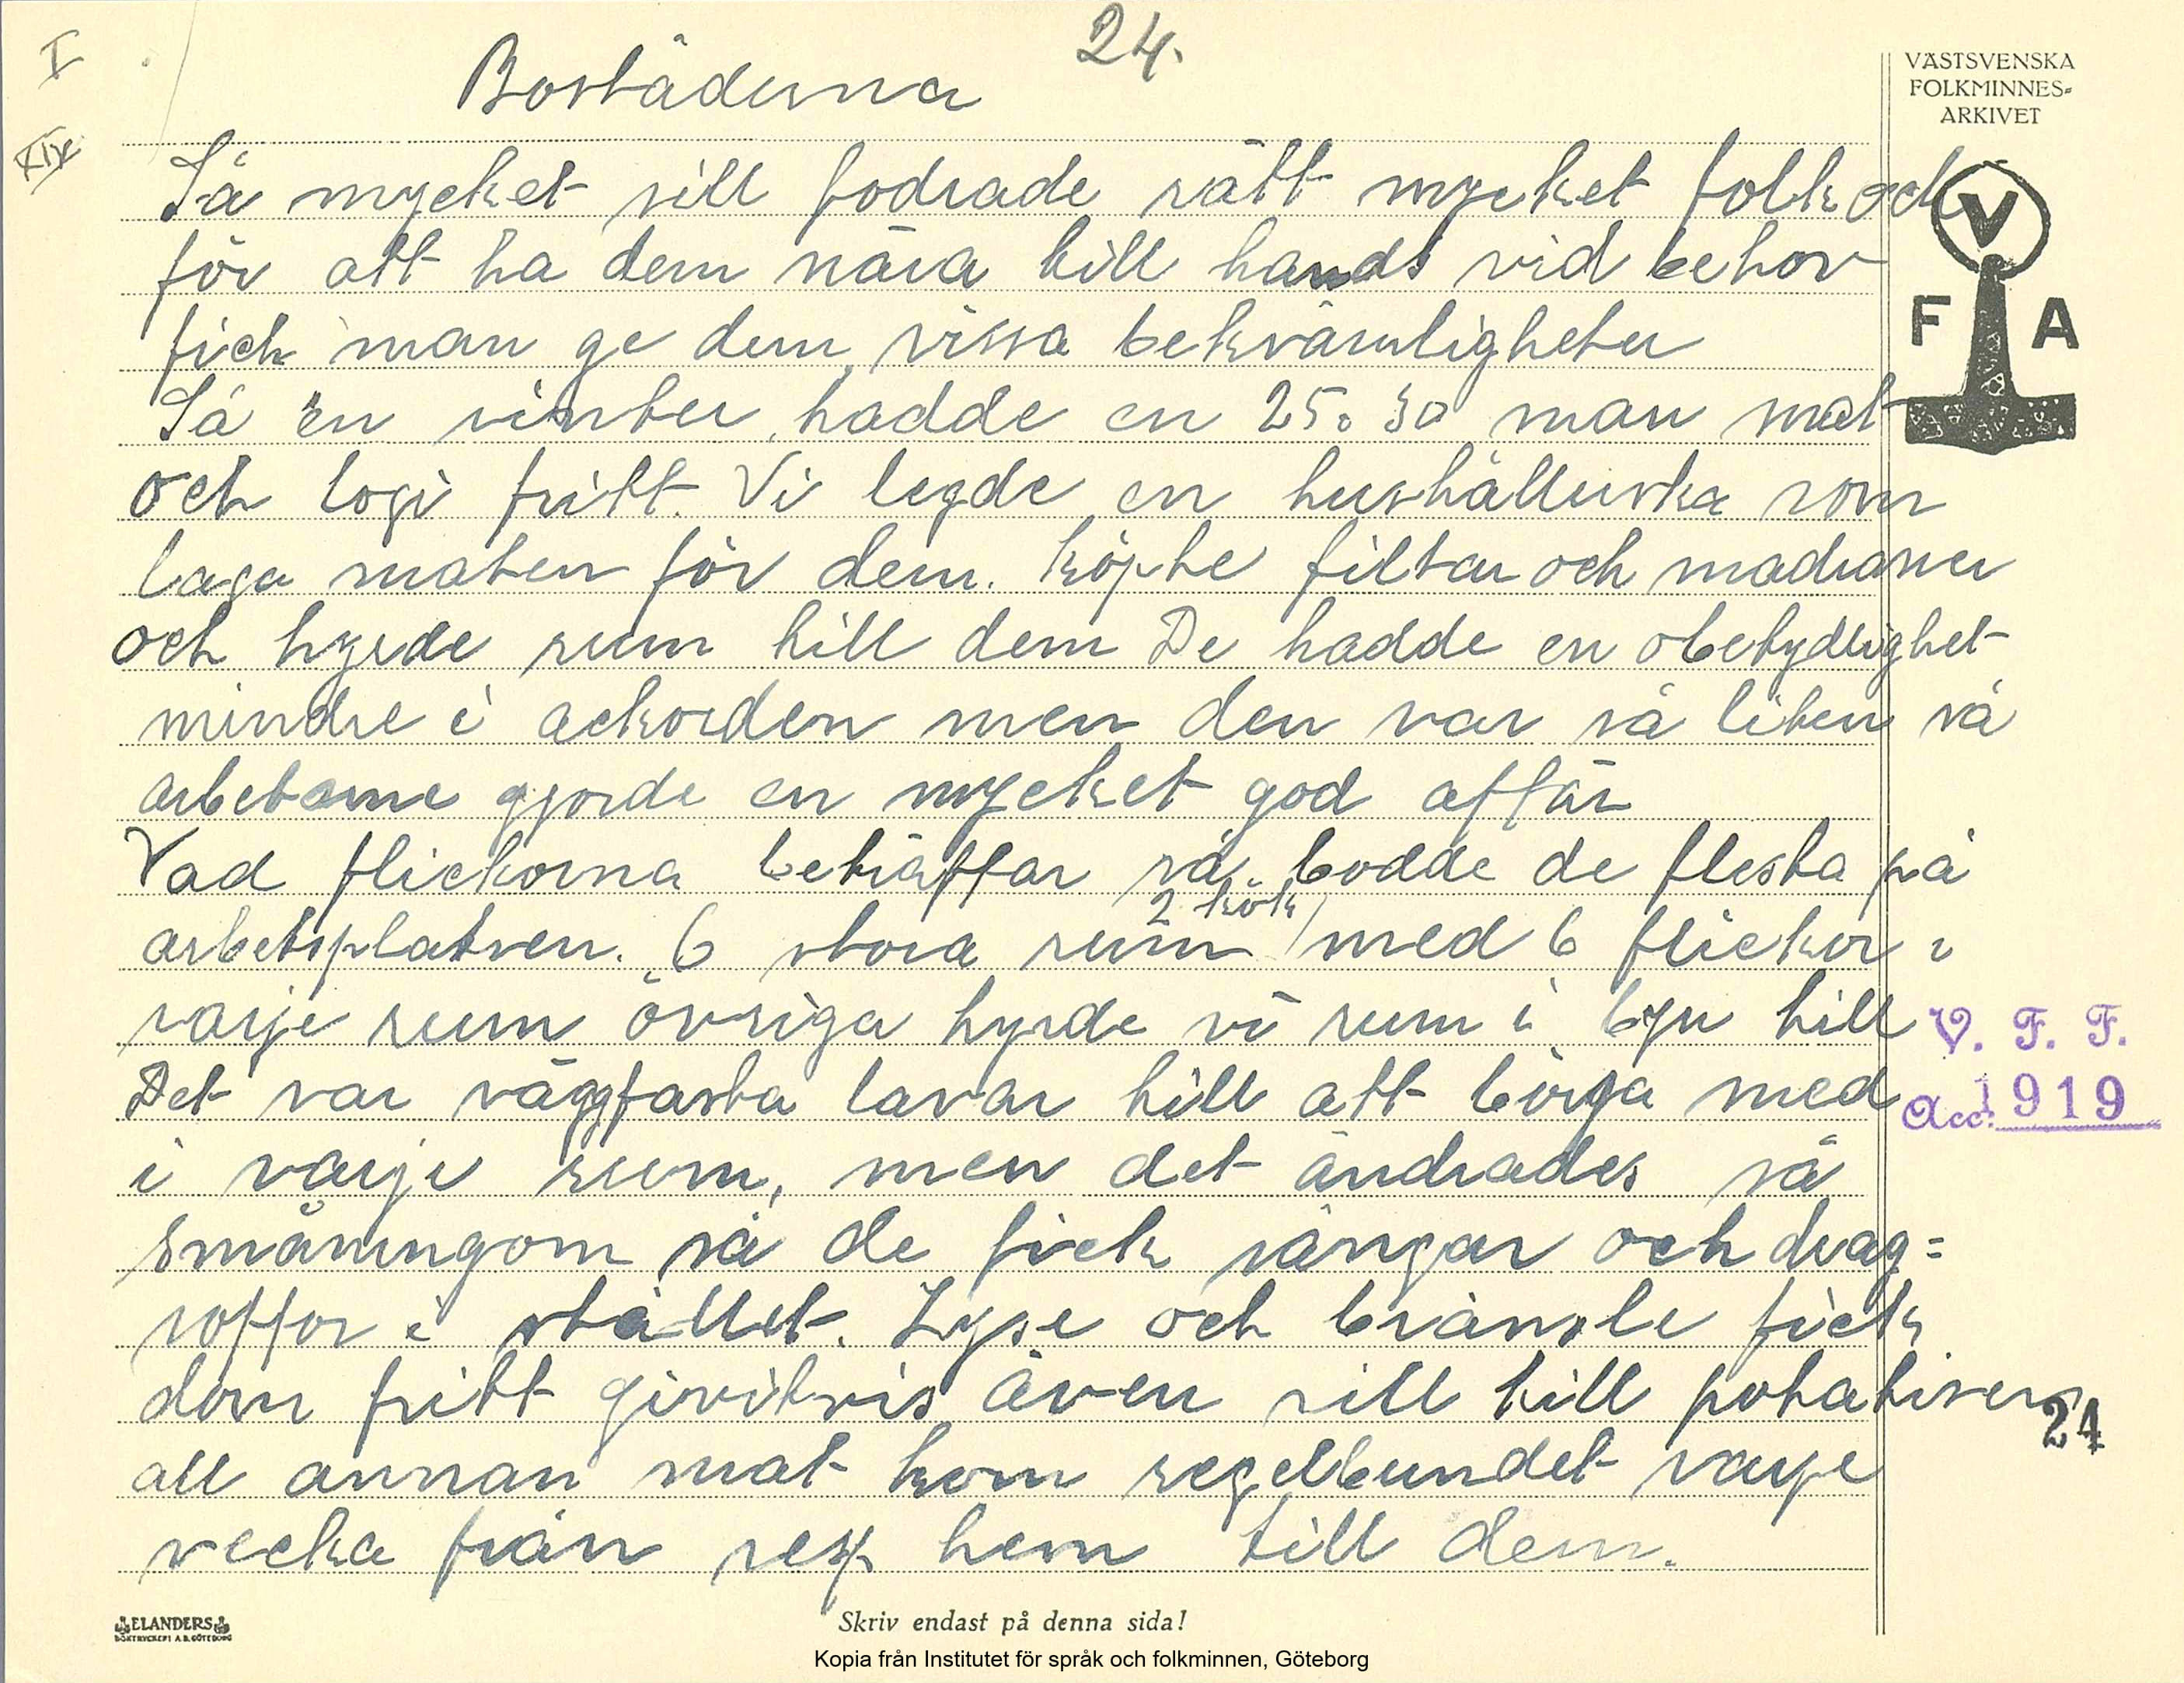 I
XIX
24.
Bostäderna
VÄSTSVENSKA
FOLKMINNES-
ARKIVET
V
F A
Så mycket sill fodrade rätt mycket folk och
för att ha dem nära till hands vid behov
fick man ge dem vissa bekvämligheter
Så en vinter hadde en 25 a 30 man mat
och logi fritt. Vi legde en hushållerska som
laga maten för dem. köpte filtar och madraser
och hyrde rum till dem De hadde en obetydlighet
mindre i ackorden men den var så liten så
arbetarne gjorde en mycket god affär
Vad flickorna beträffar så bodde de flesta på
2 kök
arbetsplatsen. 6 stora rum med 6 flickor i
varje rum övriga hyrde vi rum i byn till
Det var väggfasta lavar till att börja med
i varje rum, men det ändrades så
småningom så de fick sängar och drag=
soffor i stället. Lyse och bränsle fick
dom fritt givitvis även sill till potatisen
all annan mat kom regelbundet varje
vecka från resp hem till dem.
V. F. F.
Acc. 1919
24
ELANDERS
BOKTRYCKERI A.B. GÖTEBORG
Skriv endast på denna sida!
Kopia från Institutet för språk och folkminnen, Göteborg